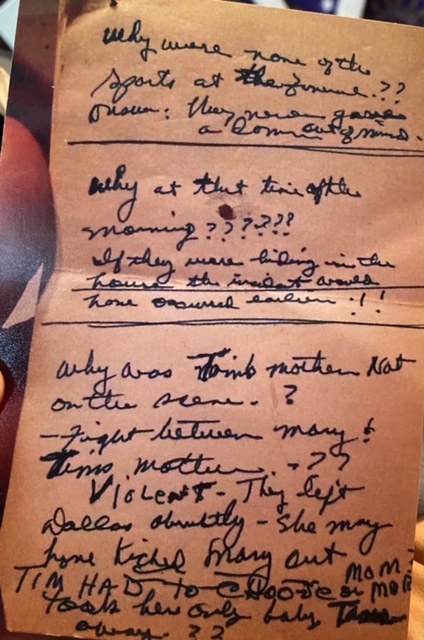 Why were none of the
sports at the ??
Answer: They never gave
a damn out of mind.
Why at that time of the
morning ??????
If they were hiding in the
house the incident would
have occurred earlier !!
Why was Tim's mother Not
on the scene. ?
- Fight between Mary &
Tim's mother. - ??
VIOLENT - They left
Dallas abruptly - She may
have kicked Mary out
TIM HAD TO CHOOSE MOM
or
took her only baby
away ??